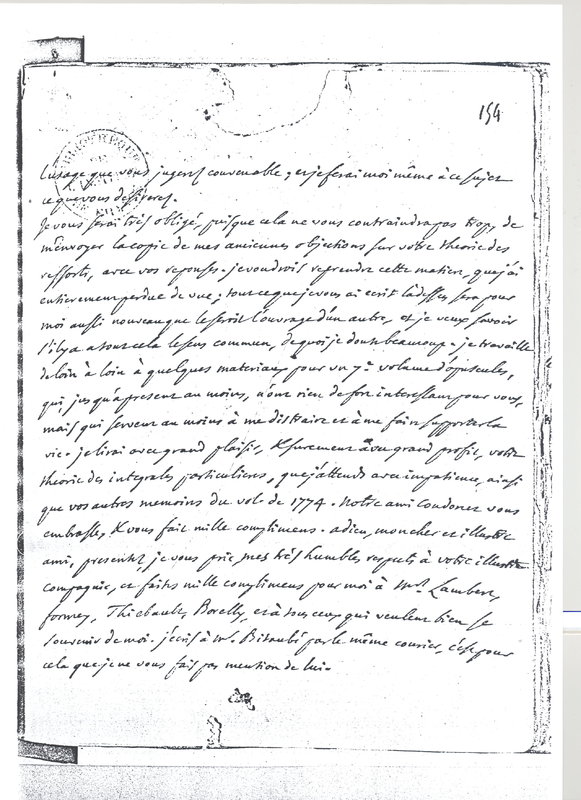 154
l'usage que vous jugerez convenable; et je ferai moi même à ce sujet
ce que vous desirerez.
Je vous serai très obligé, puisque cela ne vous contraindra pas trop, de
m'envoyer la copie de mes anciennes objections sur votre théorie des
ressorts, avec vos reponses. je voudrois reprendre cette matiere, que j'ai
entierement perdue de vue; tout ce que je vous ai ecrit là dessus sera pour
moi aussi nouveau que le seroit l'ouvrage d'un autre, et je veux savoir
s'il y a à tout cela le sens commun, de quoi je doute beaucoup. je travaille
de loin à loin à quelques materiaux pour un 7e. volume d'opuscules,
qui, jusqu'à present au moins, n'ont rien de fort interessant pour vous,
mais qui servent au moins à me distraire et à me faire supporter la
vie. je lirai avec grand plaisir, & surement avec grand profit, votre
theorie des integrales particulieres, que j'attends avec impatience, ainsi
que vos autres memoires du vol. de 1774. Notre ami Condorcet vous
embrasse, & vous fait mille complimens. adieu, mon cher et illustre
ami, presentez, je vous prie, mes très humbles respects à votre illustre
compagnie, et faites mille complimens pour moi à Mrs. Lambert,
formey, Thiebault, Borelly, et à tous ceux qui veulent bien se
souvenir de moi. j'écris à M. Bitaubé par le même courier, c'est pour
cela que je ne vous fais pas mention de lui.